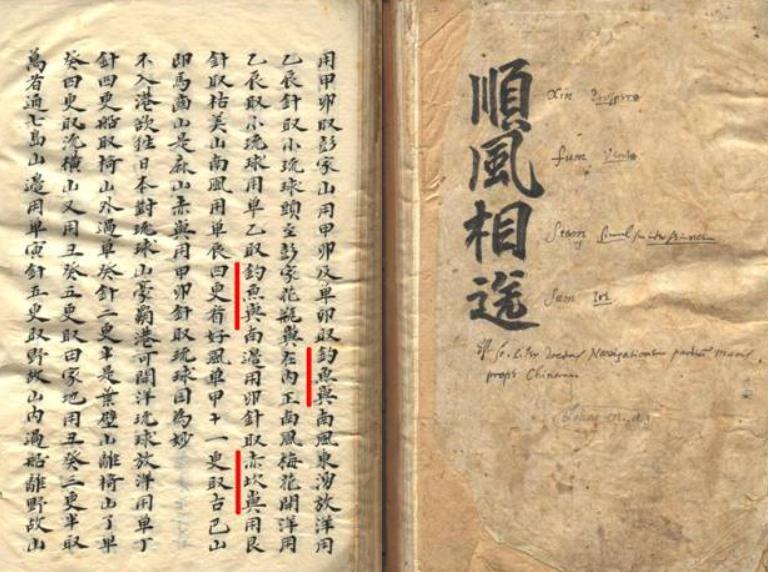 順風相送
Xin Prospero
fum Vento
Siam
Sum Ire
Navigationum
Chinense
用甲卯取彭家山用甲卯及單卯取釣魚嶼南風東湧放洋用
乙辰針取小琉球頭至彭家花瓶嶼在內正南風梅花開洋用
乙辰取小琉球用單乙取釣魚嶼南邊用卯針取赤坎嶼用艮
針取枯美山南風用單辰四更看好風單甲十一更取古巴山
即馬齒山是麻山赤嶼用甲卯針取琉球國為妙
不入港欲往日本對琉球山豪霸港可開洋琉球放洋用單丁
針四更船取椅山外過單癸針二更半是葉壁山離椅山了單
癸四更取流橫山又用丑癸五更取田家地用丑癸三更半取
萬者通七島山邊用單寅針五更取野故山內過船離野故山